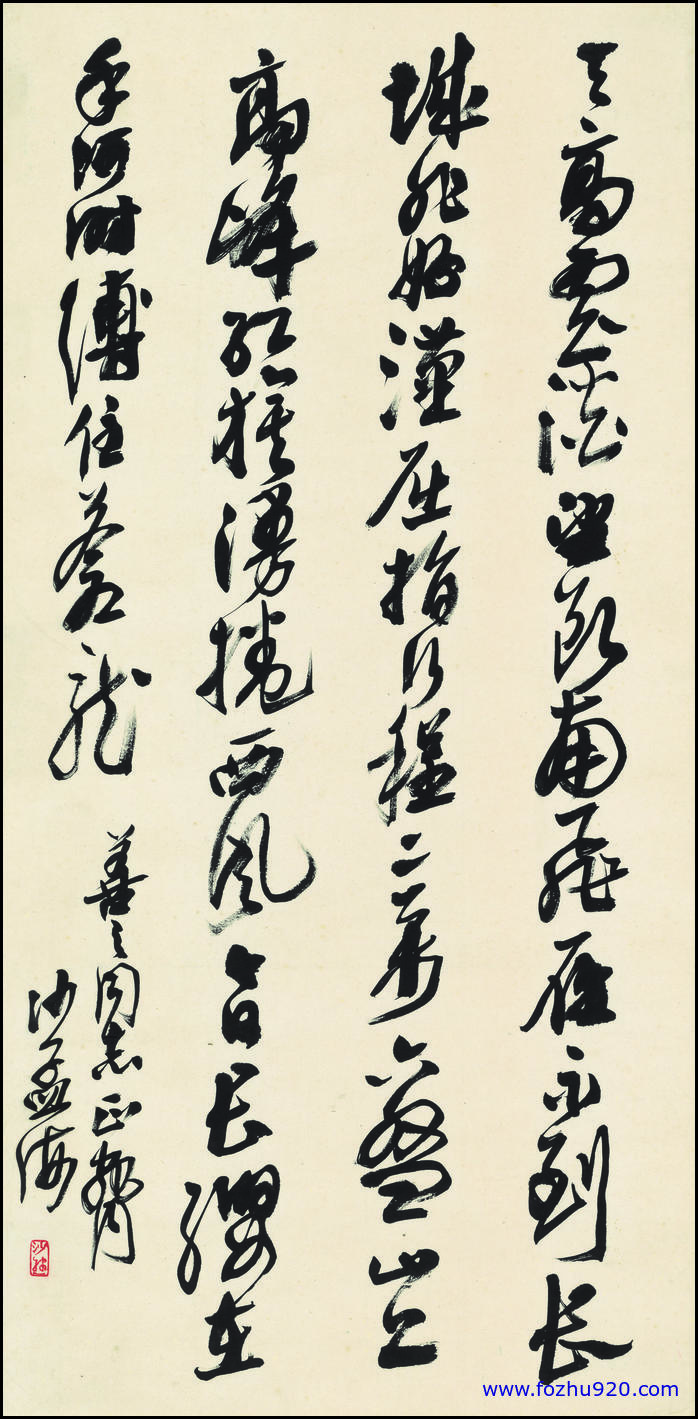 天高雲淡望断南飛雁不到長
城非好漢屈指行程二萬六盤山上
高峰紅旗漫捲西風今日長纓在
手何时縛住蒼龍
善之同志正腕
沙孟海
www.fozhu920.com